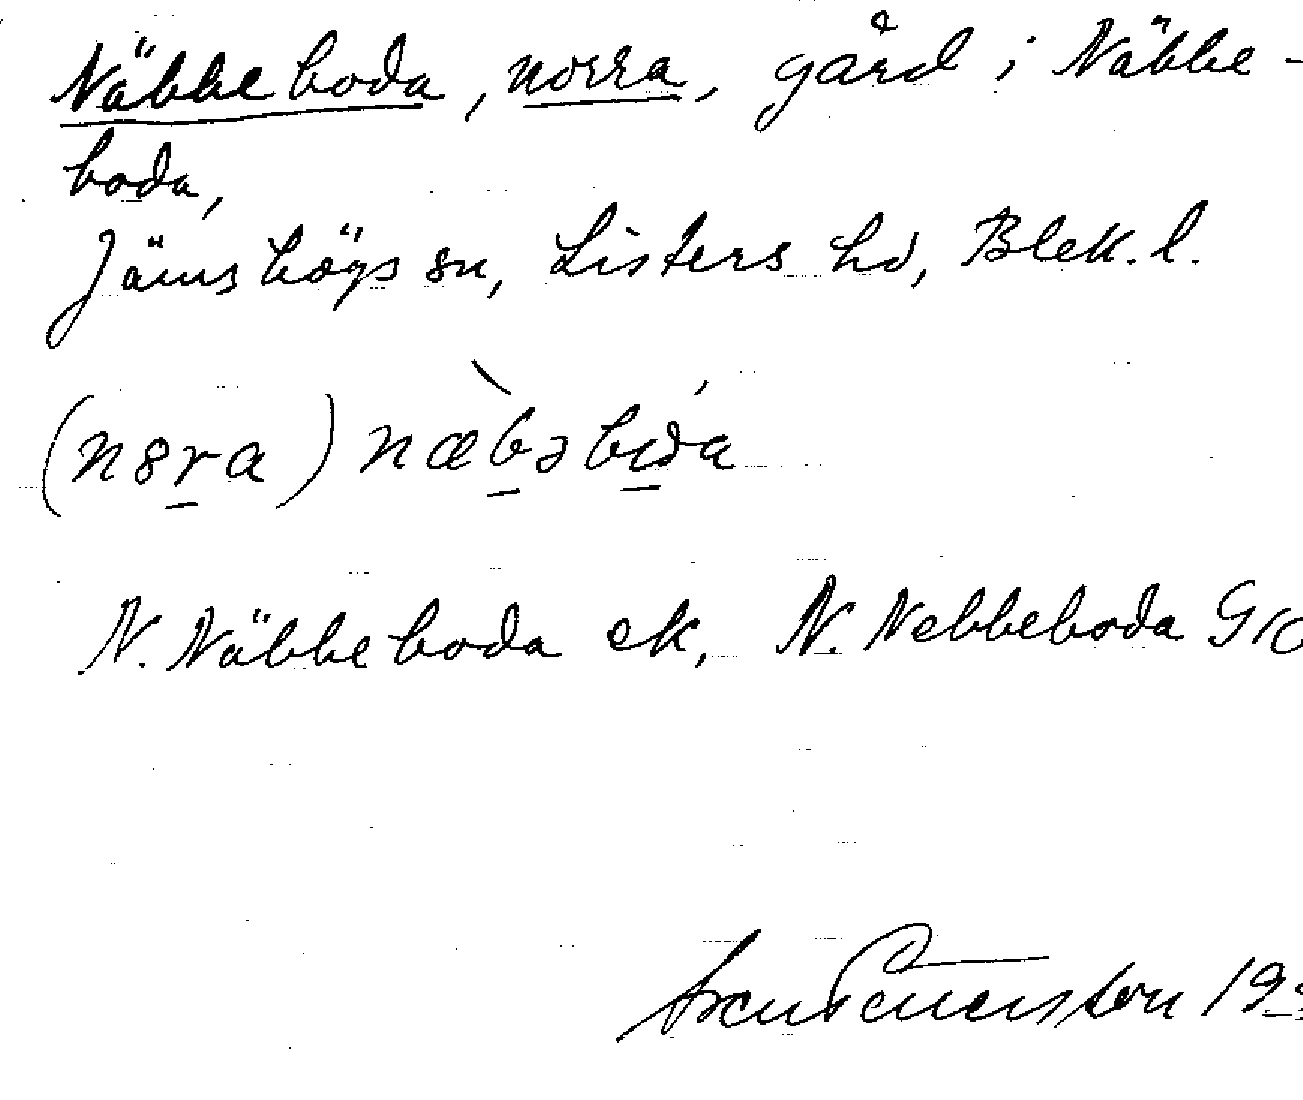 Näbbeboda, norra, gård i Näbbe-
boda,
Jämshögs sn, Listers hd, Blek. l.
(nɞra) næbəbɷda
N. Näbbeboda ek, N. Nebbeboda G10
19